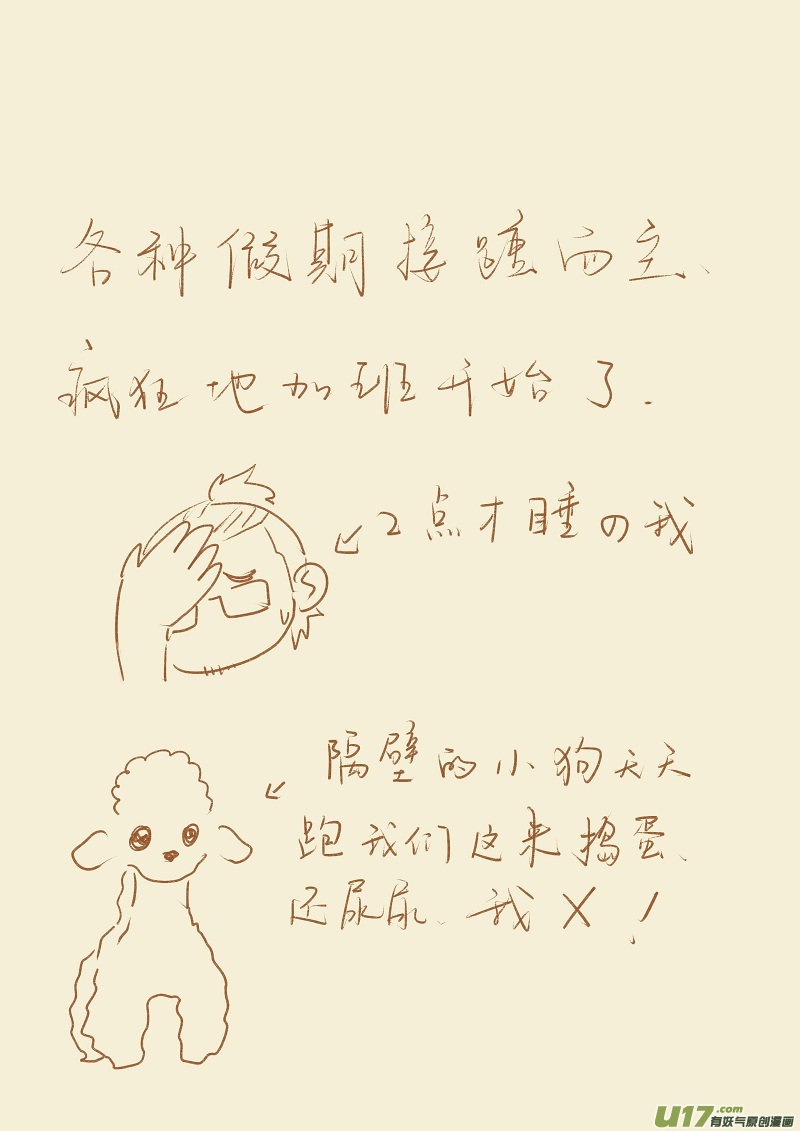 各种假期接踵而立、
疯狂地加班开始了.
2点才睡の我
隔壁的小狗天天
跑我们这来捣蛋、
还尿尿、我X!
U17.com
有妖气原创漫画